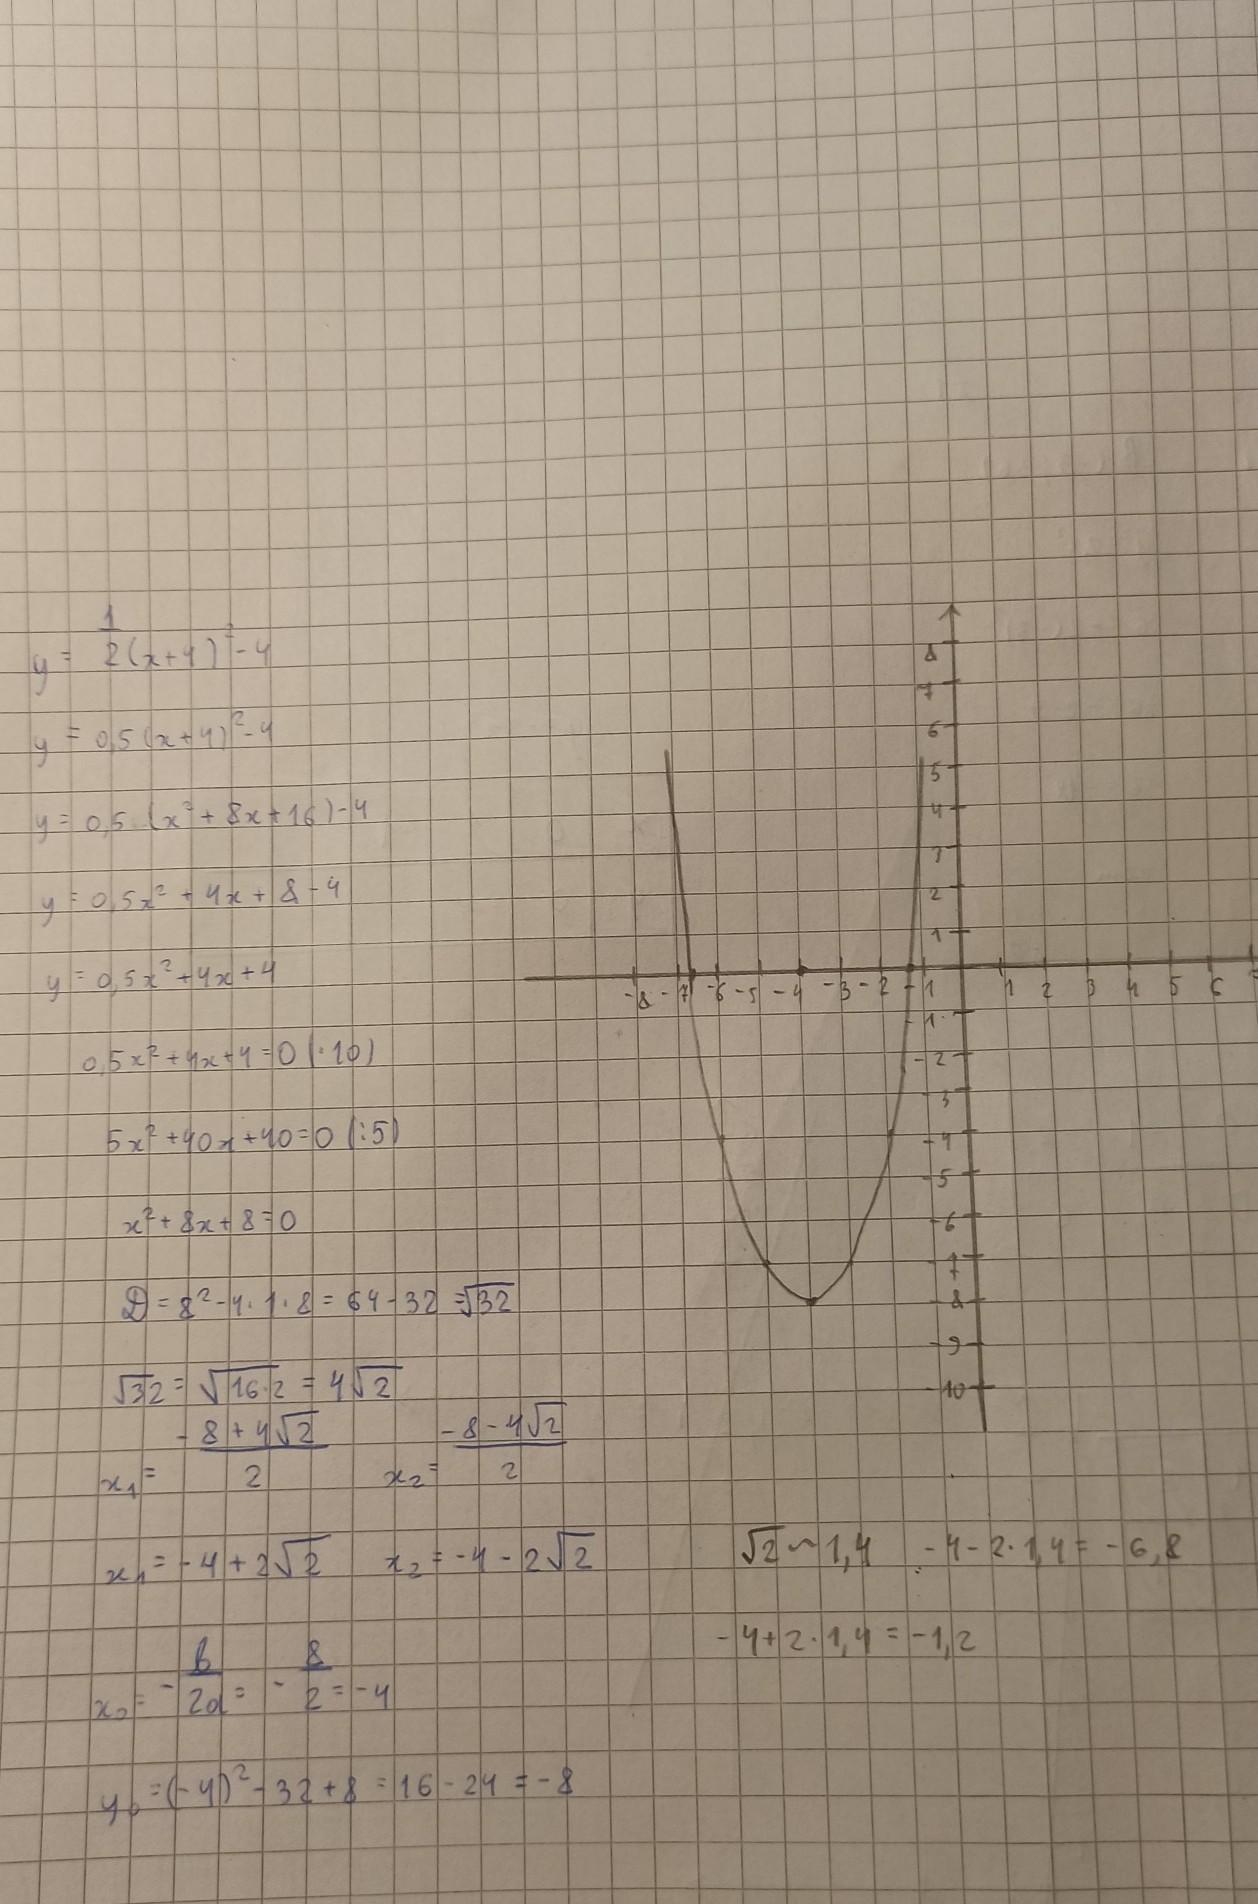 y = 1/2 (x+4)² - 4
y = 0,5 (x+4)² - 4
y = 0,5 · (x² + 8x + 16) - 4
y = 0,5x² + 4x + 8 - 4
y = 0,5x² + 4x + 4
0,5x² + 4x + 4 = 0 (·10)
5x² + 40x + 40 = 0 (:5)
x² + 8x + 8 = 0
D = 8² - 4·1·8 = 64 - 32 = √32
√32 = √16·2 = 4√2
x₁ = -8 + 4√2 / 2 x₂ = -8 - 4√2 / 2
x₁ = -4 + 2√2 x₂ = -4 - 2√2
x₀ = - b/2a = - 8/2 = -4
y₀ = (-4)² - 32 + 8 = 16 - 24 = -8
8
7
6
5
4
3
2
1
-8 -7 -6 -5 -4 -3 -2 -1 1 2 3 4 5 6
-1
-2
3
-4
-5
-6
-7
-8
-9
-10
√2 ~ 1,4 -4 - 2·1,4 = -6,8
-4 + 2·1,4 = -1,2